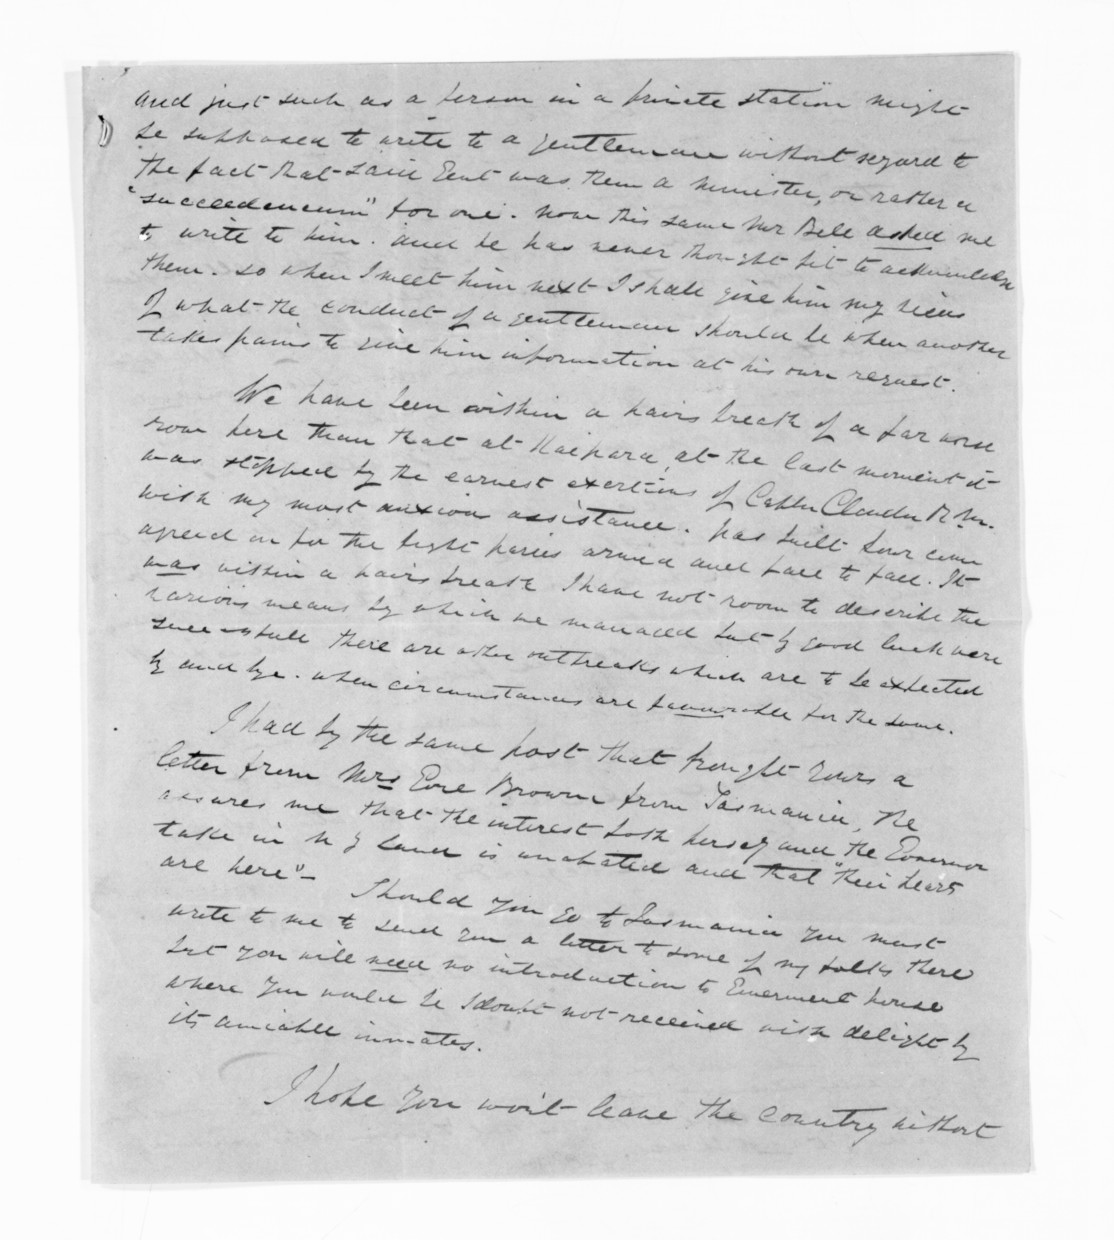 and just such as a person in a private station might
be supposed to write to a gentleman without regard to
the fact that said Gent was then a minister, or rather a
"succedeneum" for one. Now this same Mr Bell asked me
to write to him. and he has never thought fit to acknowledge
them. so when I meet him next I shall give him my views
of what the conduct of a gentleman should be when another
takes pains to give him information at his own request.
We have been within a hairs breath of a far worse
row here than that at Kaipara, at the last moment it
was stopped by the earnest exertions of Captn Clendon R.M.
with my most anxious assistance. Pas built four
agreed on for the fight parties armed and face to face. It
was within a hairs breath I have not room to describe the
various means by which we managed but by good luck were
successfull there are other outbreaks which are to be expected
by and bye. when circumstances are favourable for the same.
I had by the same post that brought yours a
letter from Mrs Gore Browne from Tasmania, She
assures me that the interest both herself and the Governor
take in N Z land is unabated and that "their hearts
are here" - Should you go to Tasmania you must
write to me to send you a letter to some of my folks there
but you will need no introduction to Government house
where you would be I doubt not received with delight by
its amiable inmates.
I hope you wont leave the country without